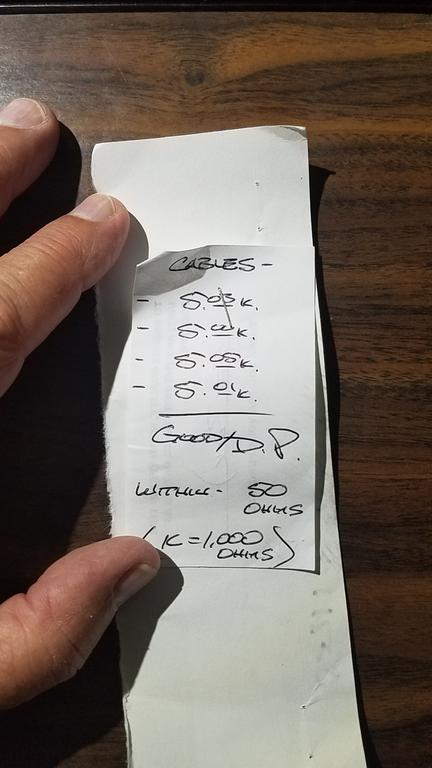 CABLES -
- 5.03 K.
- 5.02 K.
- 5.05 K.
- 5.01 K.
GOOD/D.P.
WITHIN - 50
OHMS
( K = 1,000
OHMS )